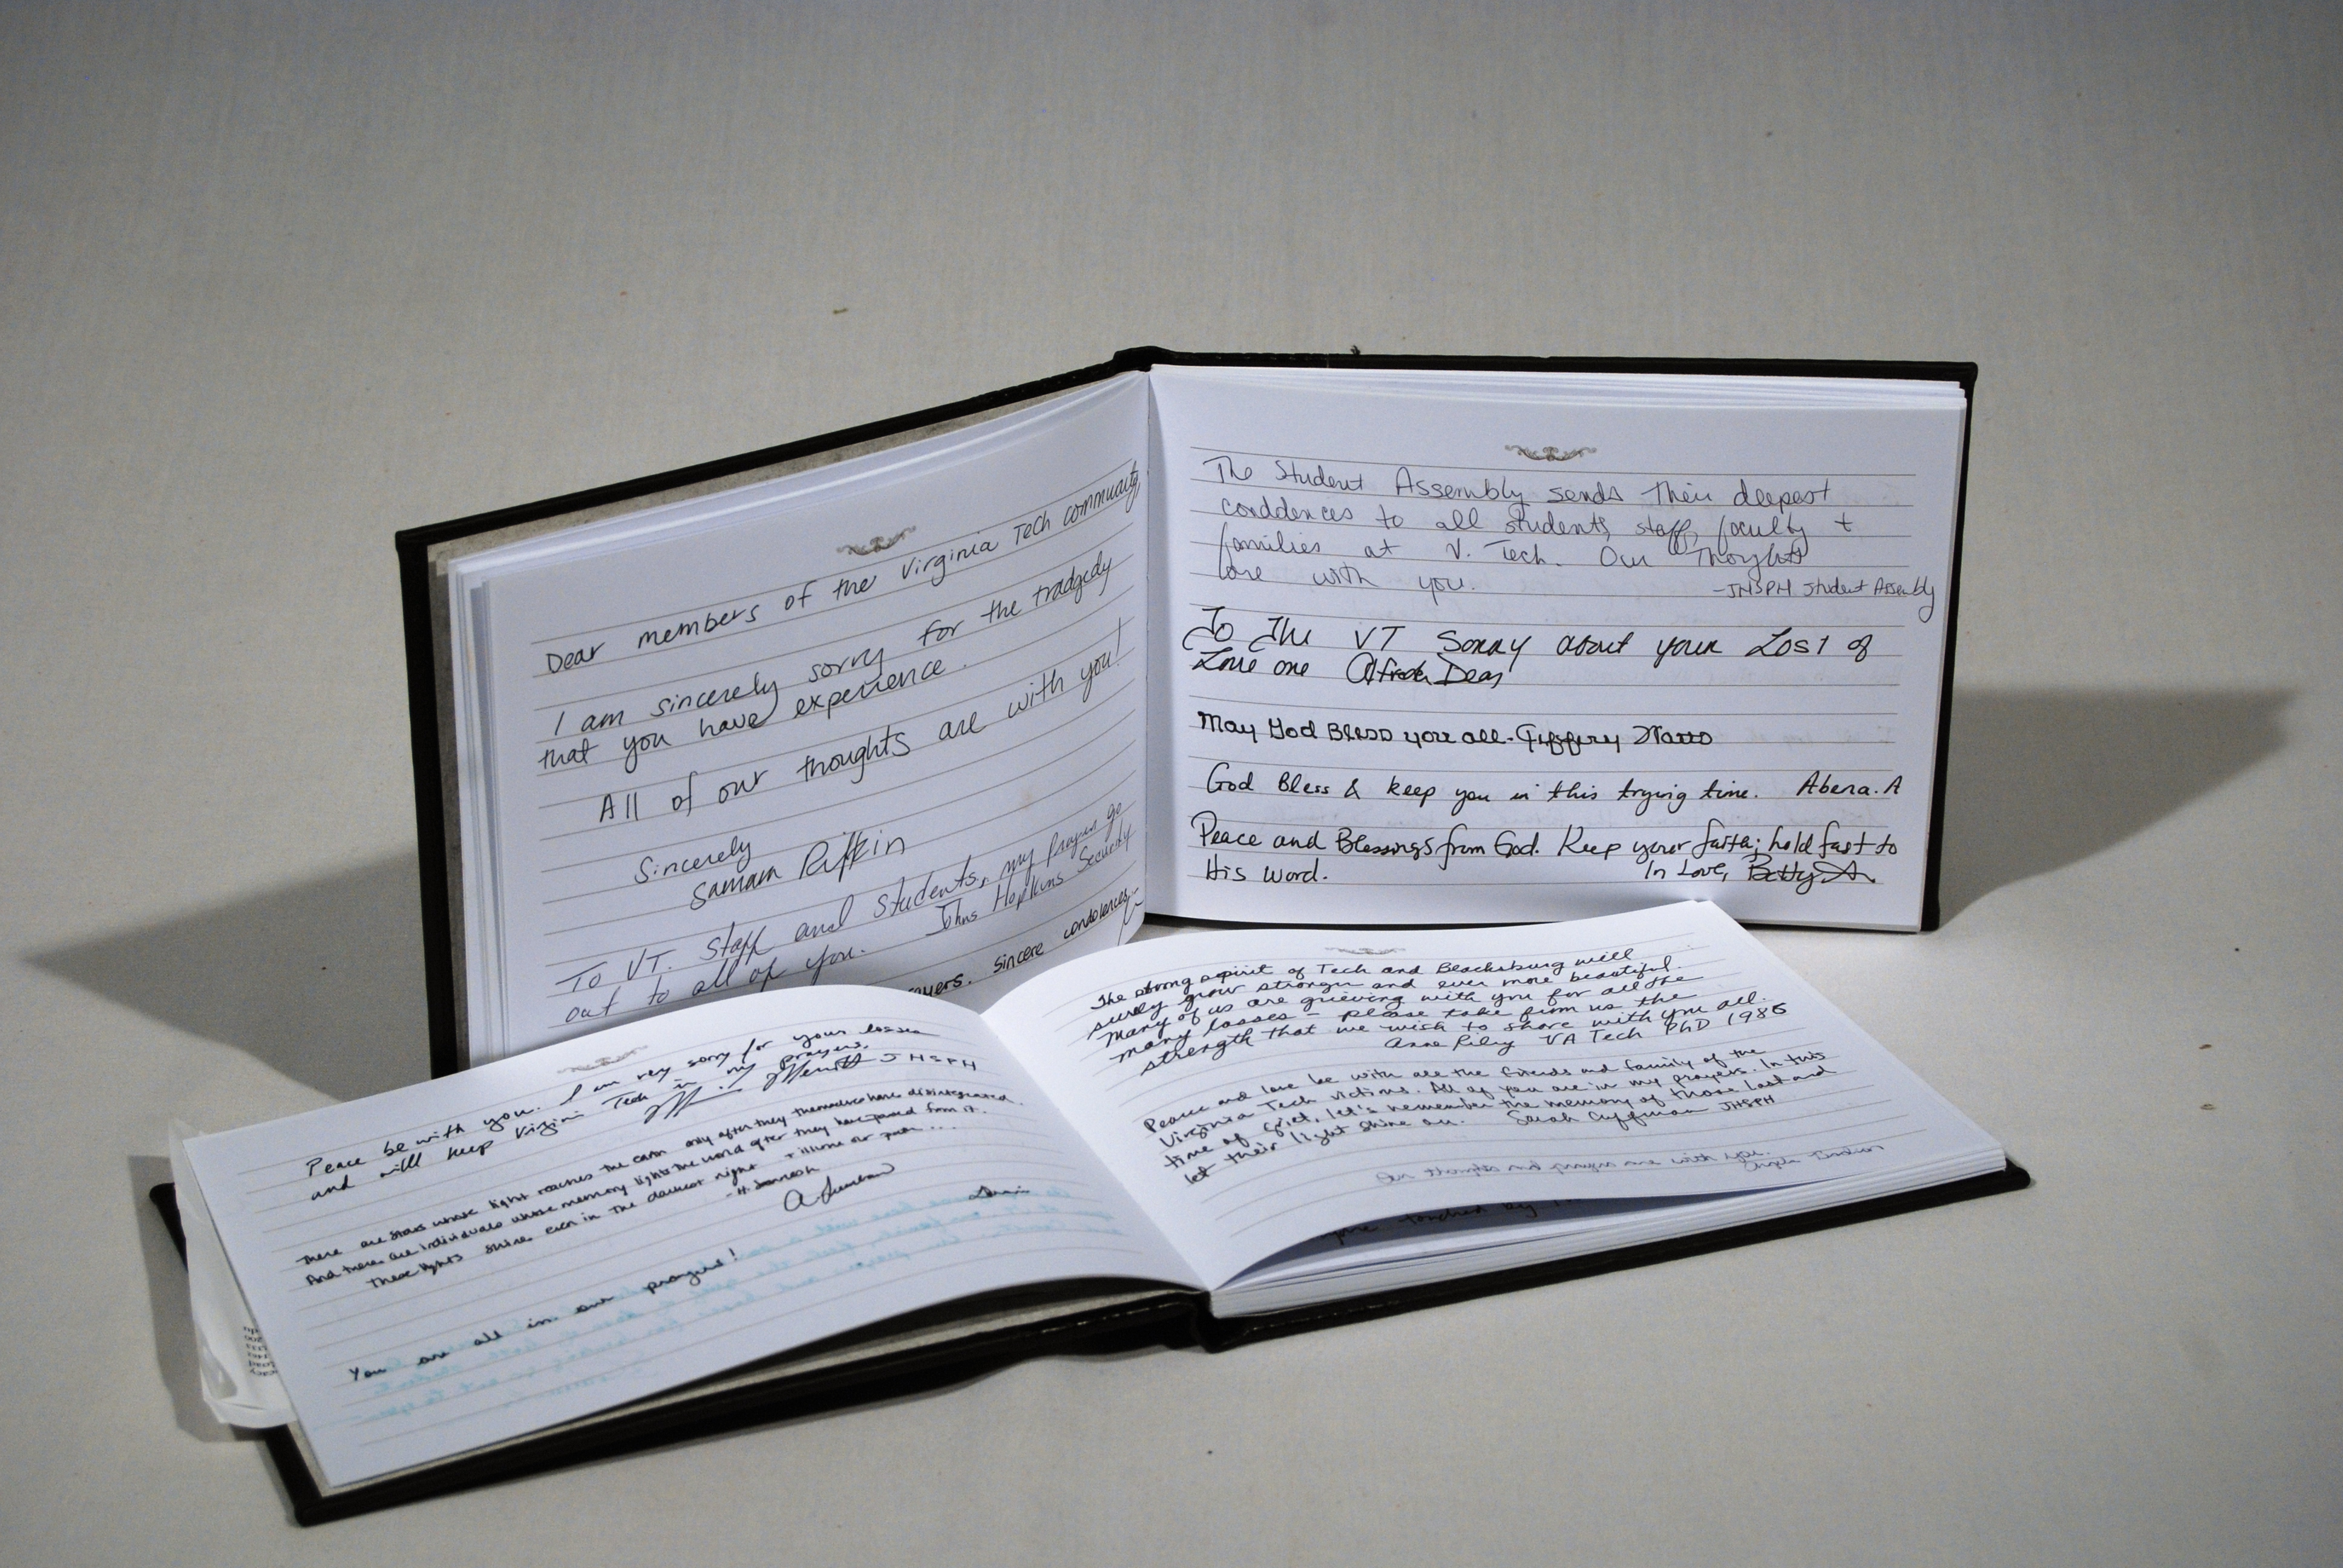 Dear members of the Virginia Tech community,
I am sincerely sorry for the tradgedy
that you have experience.
All of our thoughts are with you!
Sincerely
Samara Rifkin
To VT. Staff and Students, my prayers go
out to all of you. Johns Hopkins Security
sincere condolences
The Student Assembly sends their deepest
conddences to all students, staff, faculty +
families at V. Tech. Our Thoughts
are with you.
-JHSPH Student Assembly
To The VT Sorry about your Lost of
Love one
May God Bless you all- Jeffery Watts
God Bless & keep you in this trying time. Abena. A
Peace and Blessings from God. Keep your faith; hold fast to
His word. In Love, Betty
Peace be with you. I am very sorry for your losses
and will keep Virginia Tech in my prayers.
JHSPH
There are stars whose light reaches the earth only after they themselves have disintegrated.
And there are individuals whose memory lights the world after they have passed from it.
These lights shine even in the darkest night + illumine our path...
You are all in our prayers!
The strong spirit of Tech and Blacksburg will
surely grow stronger and ever more beautiful.
Many of us are grieving with you for all the
many losses - please take from us the
strength that we wish to share with you all.
Anne Riley VA Tech PhD 1986
Peace and love be with all the friends and family of the
Virginia Tech victims. All of you are in my prayers. In this
time of grief, let's remember the memory of those lost and
let their light shine on. Sarah JHSPH
Our thoughts and prayers are with you.
touched by